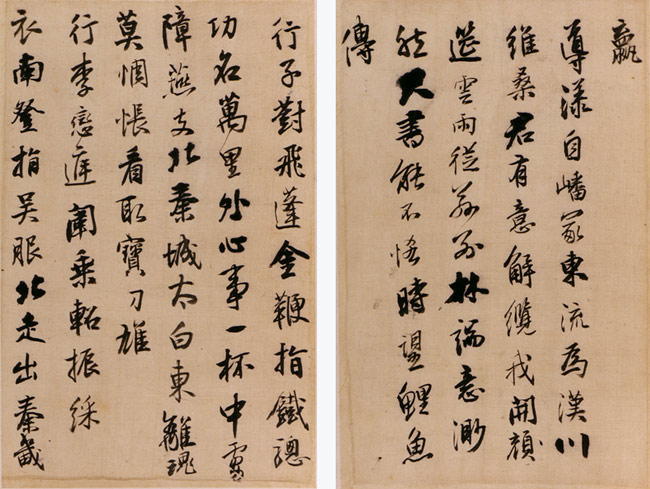 導漾自嶓冢東流為漢川
維桑君有意解纜我開顏
筵雲雨從茲別林端意渺
然尺書能不悋時望鯉魚
傳
行子對飛蓬金鞭指鐵驄
功名萬里外心事一杯中虜
障燕支北秦城太白東離魂
莫惆悵看取寶刀雄
行李戀庭闈乘軺振綵
衣南登指吳服北走出秦畿